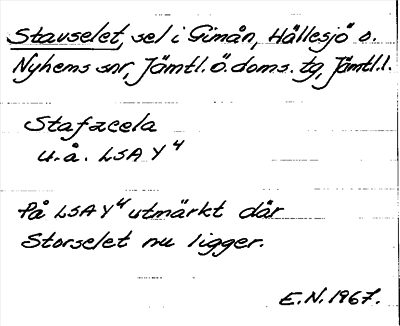 Stavselet, sel i Gimån, Hällesjö o.
Nyhems snr, Jämtl. ö. doms. tg, Jämtl. l.
Stafacela
u.å. LSA Y⁴
På LSA Y⁴ utmärkt där
Storselet nu ligger.
E.N. 1967.